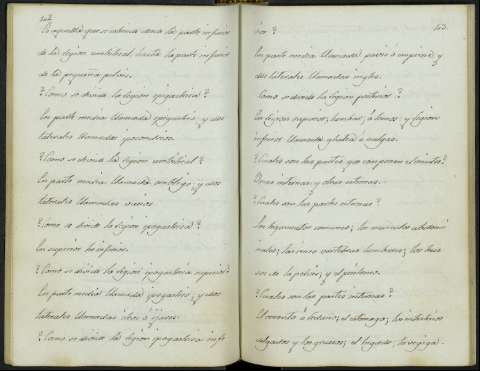 102
Es aquella que se estiende desde la parte inferior
de la region umbilical, hasta la parte inferior
de la pequeña pelvis.
? Como se divide la region epigastrica ?
En parte media llamada epigastrio, y dos
laterales llamadas ipocondrios.
? Como se divide la region umbilical ?
En parte media llamada ombligo, y dos
laterales llamadas vacios.
? Como se divide la region ipogastrica ?
En superior é inferior.
? Como se divide la region ipogastrica superior ?
En parte media llamada ipogastrio, y dos
laterales llamadas ileos ó ijares.
? Como se divide la region ipogastrica infe
103
rior ?
En parte media llamada pubis ó empeine, y
dos laterales llamadas ingles.
Como se divide la region posterior ?
En region superior, lumbar, ó lomos; y region
inferior llamada glutea ó nalgas.
? Cuales son las partes que componen el vientre ?
Unas internas y otras esternas.
? Cuales son las partes esternas ?
Los tegumentos comunes; los musculos abdomi
nales; las cinco vertebras lumbares; los hue
sos de la pelvis, y el peritoneo.
? Cuales son las partes internas ?
El omento ó redaño; el estomago; los intestinos
delgados y los gruesos; el higado; la vegiga